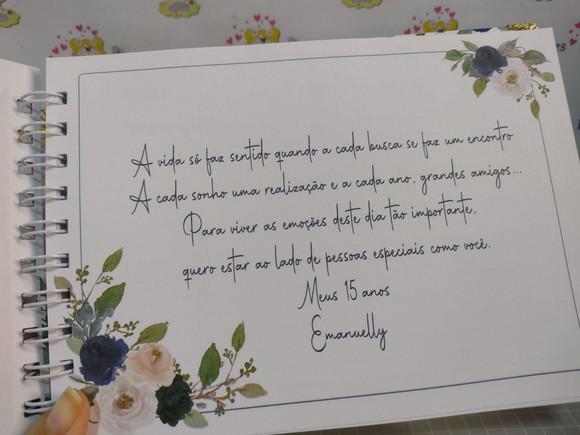 A vida só faz sentido quando a cada busca se faz um encontro
A cada sonho uma realização e a cada ano, grandes amigos...
Para viver as emoções deste dia tão importante,
quero estar ao lado de pessoas especiais como você.
Meus 15 anos
Emanuelly